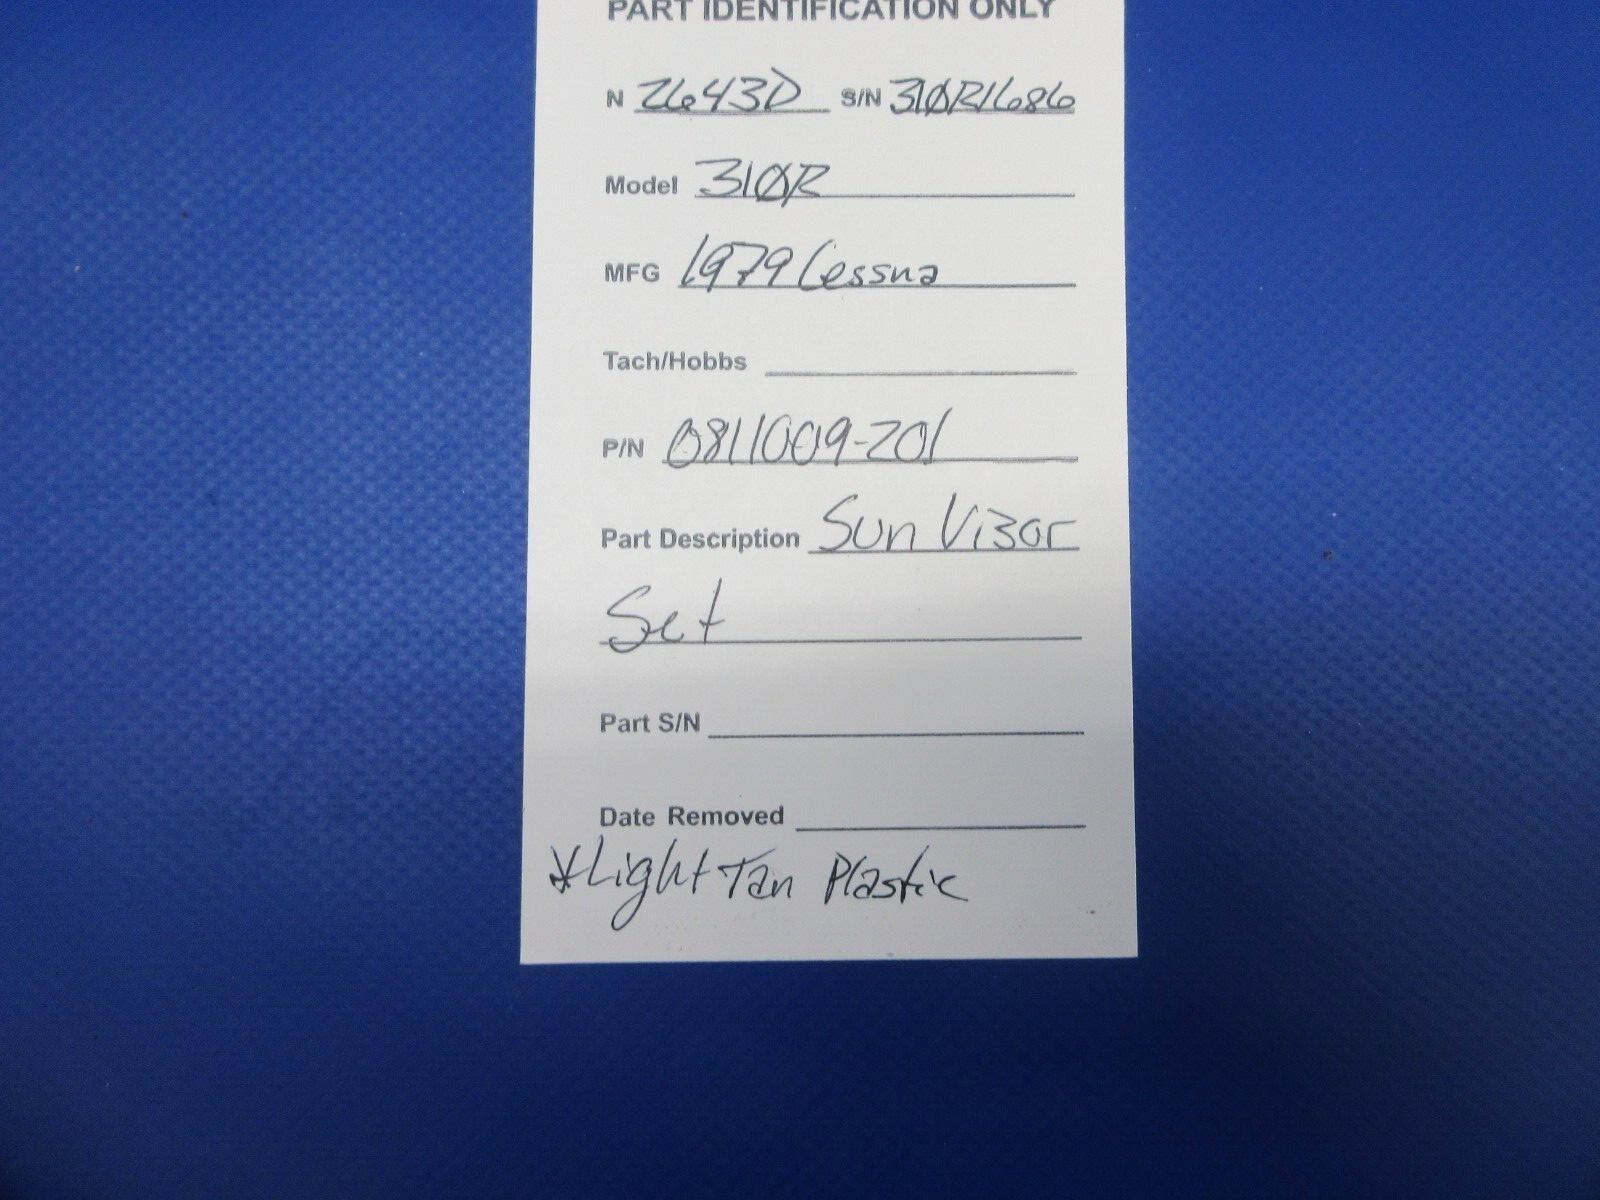 PART IDENTIFICATION ONLY
N 2643D S/N 310R1686
Model 310R
MFG 1979 Cessna
Tach/Hobbs
P/N 0811009-201
Part Description Sun Vizor
Set
Part S/N
Date Removed
*Light Tan Plastic